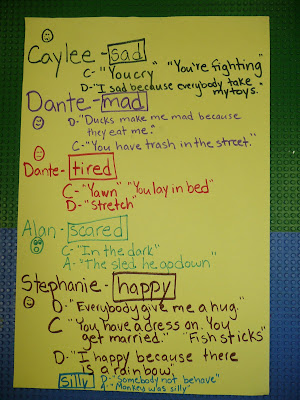 Caylee - sad
C- "You cry" "You're fighting"
D- "I sad because everybody take my toys."
Dante - mad
D- "Ducks make me mad because
they eat me."
C- "You have trash in the street."
Dante - tired
C- "Yawn" "You lay in bed"
D- "Stretch"
Alan - scared
C- "In the dark"
A- "The sled he go down"
Stephanie - happy
D- "Everybody give me a hug."
C "You have a dress on. You
get married." "Fish sticks"
D- "I happy because there
is a rainbow."
silly D- "Somebody not behave"
A- "Monkey was silly"